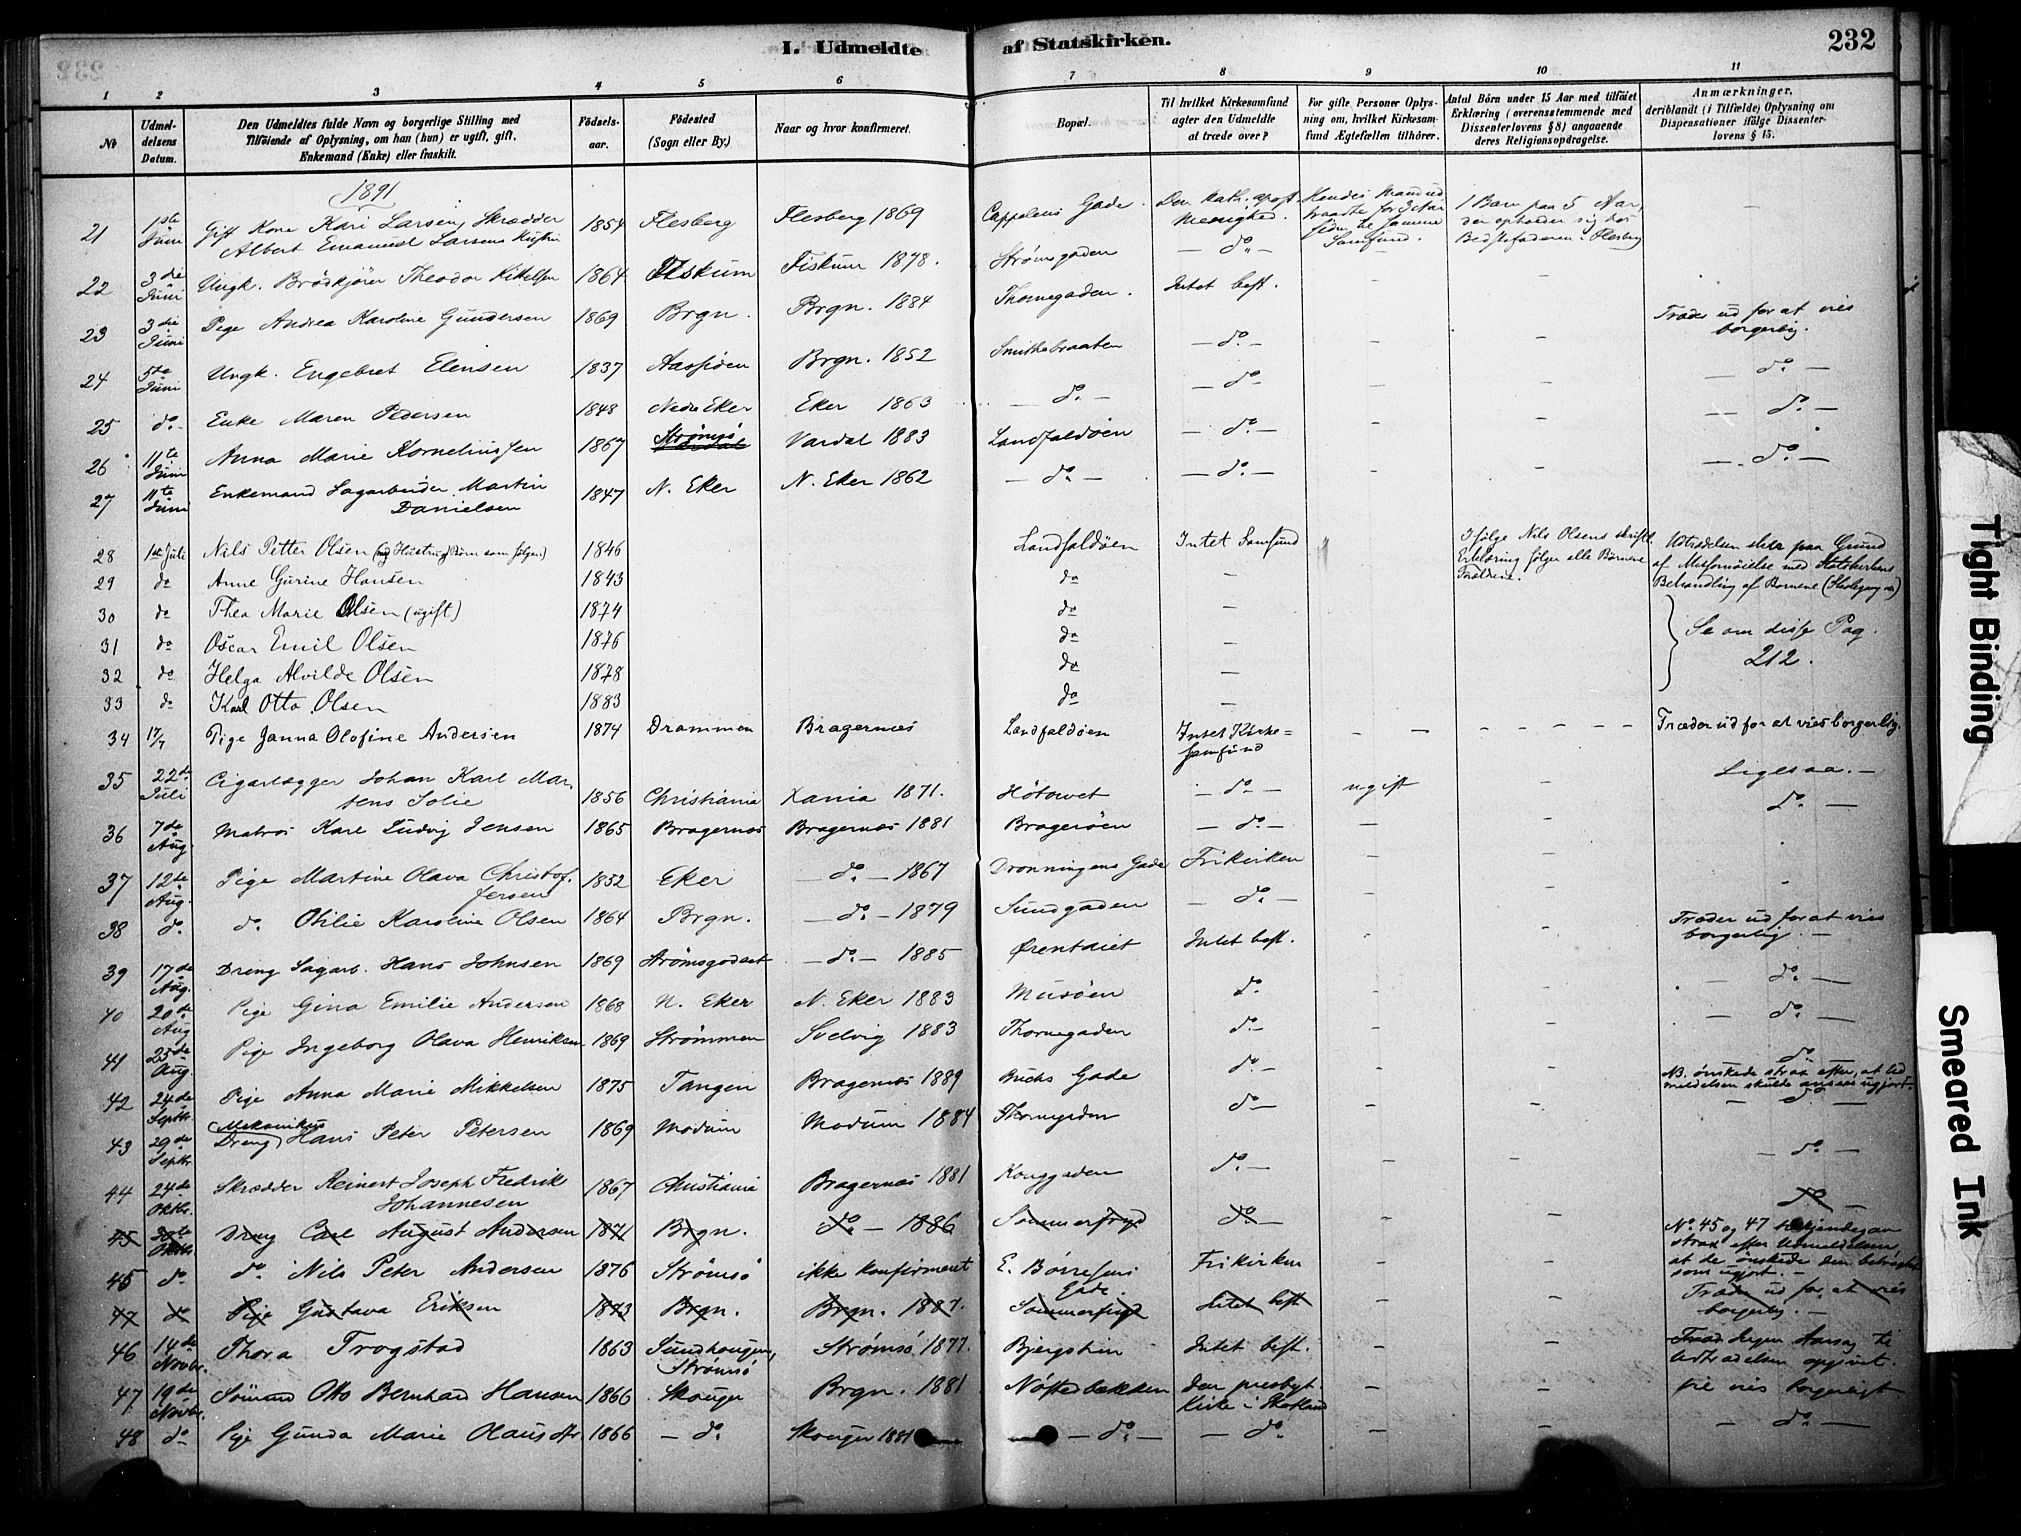 I. Udmeldte af Statskirken.
232
1 2 3 4 5 6 7 8 9 10 11
No
Udmeldelsens Datum.
Den Udmeldtes fulde Navn og borgerlige Stilling med
Tilføiende af Oplysning, om han (hun) er ugift, gift,
Enkemand (Enke) eller fraskilt.
Fødselsaar.
Fødested
(Sogn eller By.)
Naar og hvor konfirmeret.
Bopæl.
Til hvilket Kirkesamfund
agter den Udmeldte
at træde over?
For gifte Personer Oplysning om, hvilket Kirkesamfund Ægtefællen tilhører.
Antal Børn under 15 Aar med tilføiet
Erklæring (overensstemmende med
Dissenterlovens § 8) angaaende
deres Religionsopdragelse.
Anmærkninger,
deriblandt (i Tilfælde) Oplysning om
Dispensationer ifølge Dissenterlovens § 15.
1891
21 1ste Juni Gift Kone Kari Larsen, Skrædder Albert Emanuel Larsens Hustru 1854 Flesberg Flesberg 1869 Cappelens Gade. Den kath. apost. Menighed. 1 Barn paa 5 Aar, der opholder sig hos Bedstefaderen i Flesberg —
22 3die Juni Ungk. Brødkjører Theodor Kittelsen 1864 Fiskum Fiskum 1878. Strømsgaden — do. — —
23 3die Juni Pige Andrea Karoline Gundersen 1869 Brgn. Brgn. 1884 Thornegaden. Intet best. — — Træder ud for at vies borgerlig.
24 5te Juni Ungk. Engebret Elensen 1837 Aassiden Brgn. 1852 Smithebraaten — do. — — — — do. —
25 do. Enke Maren Pedersen 1848 Nedre Eker Eker 1863 — do. — — do. — — — do. —
26 11te Juni Anna Marie Korneliussen 1867 Strømsø Vardal 1883 Landfaldøen — do. — — — do. —
27 11te Juni Enkemand Sagarbeider Martin Danielsen 1847 N. Eker N. Eker 1862 — do. — — do. — — —
28 1ste Juli Nils Petter Olsen (og Hustru og Børn som følger) 1846 Landfaldøen Intet Samfund Ifølge Nils Olsens skriftl. Erklæring følger alle Børnene Forældrene. Udtrædelsen skeer paa Grund af Misfornøielse med Statskirkens Behandling af Børnene
29 do Anne Gurine Hansen 1843 do —
30 do Thea Marie Olsen (ugift) 1874 do —
31 do Oscar Emil Olsen 1876 do — Se om disse Pag. 212.
32 do Helga Alvilde Olsen 1878 do —
33 do Karl Otto Olsen 1883 do —
34 17/7 Pige Janna Olofine Andersen 1874 Drammen Bragernæs Landfaldøen Intet Kirkesamfund — — — — — — Træder ud for at vies borgerlig.
35 22de Juli Cigarlægger Johan Karl Martens Solie 1856 Christiania Xania 1871. Høtorvet — do. — ugift — Ligesaa. —
36 7de Aug Matros Karl Ludvig Jensen 1865 Bragernæs Bragernæs 1881 Bragerøen — do. — — — do. —
37 12te Aug. Pige Martine Olava Christoffersen 1852 Eker — do. — 1867 Dronningens Gade Frikirken — —
38 do. do. Otilie Karoline Olsen 1864 Brgn. — do. — 1879 Sundgaden — do. — — — -
39 17de Aug. Dreng Sagarb. Hans Johnsen 1869 Strømsgodset — do. — 1885 Ørentdiet Intet best. - — Træder ud for at vies borgerlig. —
40 20de Aug Pige Gina Emilie Andersen 1868 N. Eker N. Eker 1883 Musøen do. - — — do. —
41 25de Aug. Pige Ingeborg Olava Henriksen 1869 Strømmen Svelvig 1883 Thornegaden do. — — — do. —
42 24de Septbr. Pige Anna Marie Mikkelsen 1875 Tangen Bragernæs 1889 Buchs Gade do. — — — do. NB. ønskede strax efter, at Udmeldelsen skulde ansees ugjort.
43 29de Septbr Mekanikus Dreng Hans Peter Petersen 1869 Modum Modum 1884 Thornegaden do — — — — do —
44 24de Oktbr. Skrædder Reinert Joseph Fredrik Johannesen 1867 Christiania Bragernæs 1881 Konggaden do. — — — — do. —
45 30te Oktbr. Dreng Carl August Andersen 1871 Brgn. do. — 1886 Sommerfryd do. — — — do —
No. 45 og 47 strax efter Udmeldelsen, at de ønskede den betragtet som ugjort. —
45 do. do. Nils Peter Andersen 1876 Strømsø ikke konfirmeret E. Børresens Gade. Frikirken — —
47 do Pige Gustava Eriksen 1873 Brgn. Brgn. 1887. Sommerfryd Intet best — — Træder ud for at vies borgerlig. —
46 14de Novbr. Thora Trogstad 1863 Sundhaugen, Strømsø Strømsø 1877. Bjergstien Intet best. — — Ingen Aarsag til Udtrædelsen opgivet.
47 19de Novbr. Sømand Otto Bernhard Hansen 1866 Skouger Brgn. 1881 Nøstedbækken den presbyt. Kirke i Skotland — — vil vies borgerligt
48 do Pige Gunda Marie Olausdtr 1866 — do. Skouger 1881 — do. — — do. — — — do. —
Tight Binding
Smeared Ink